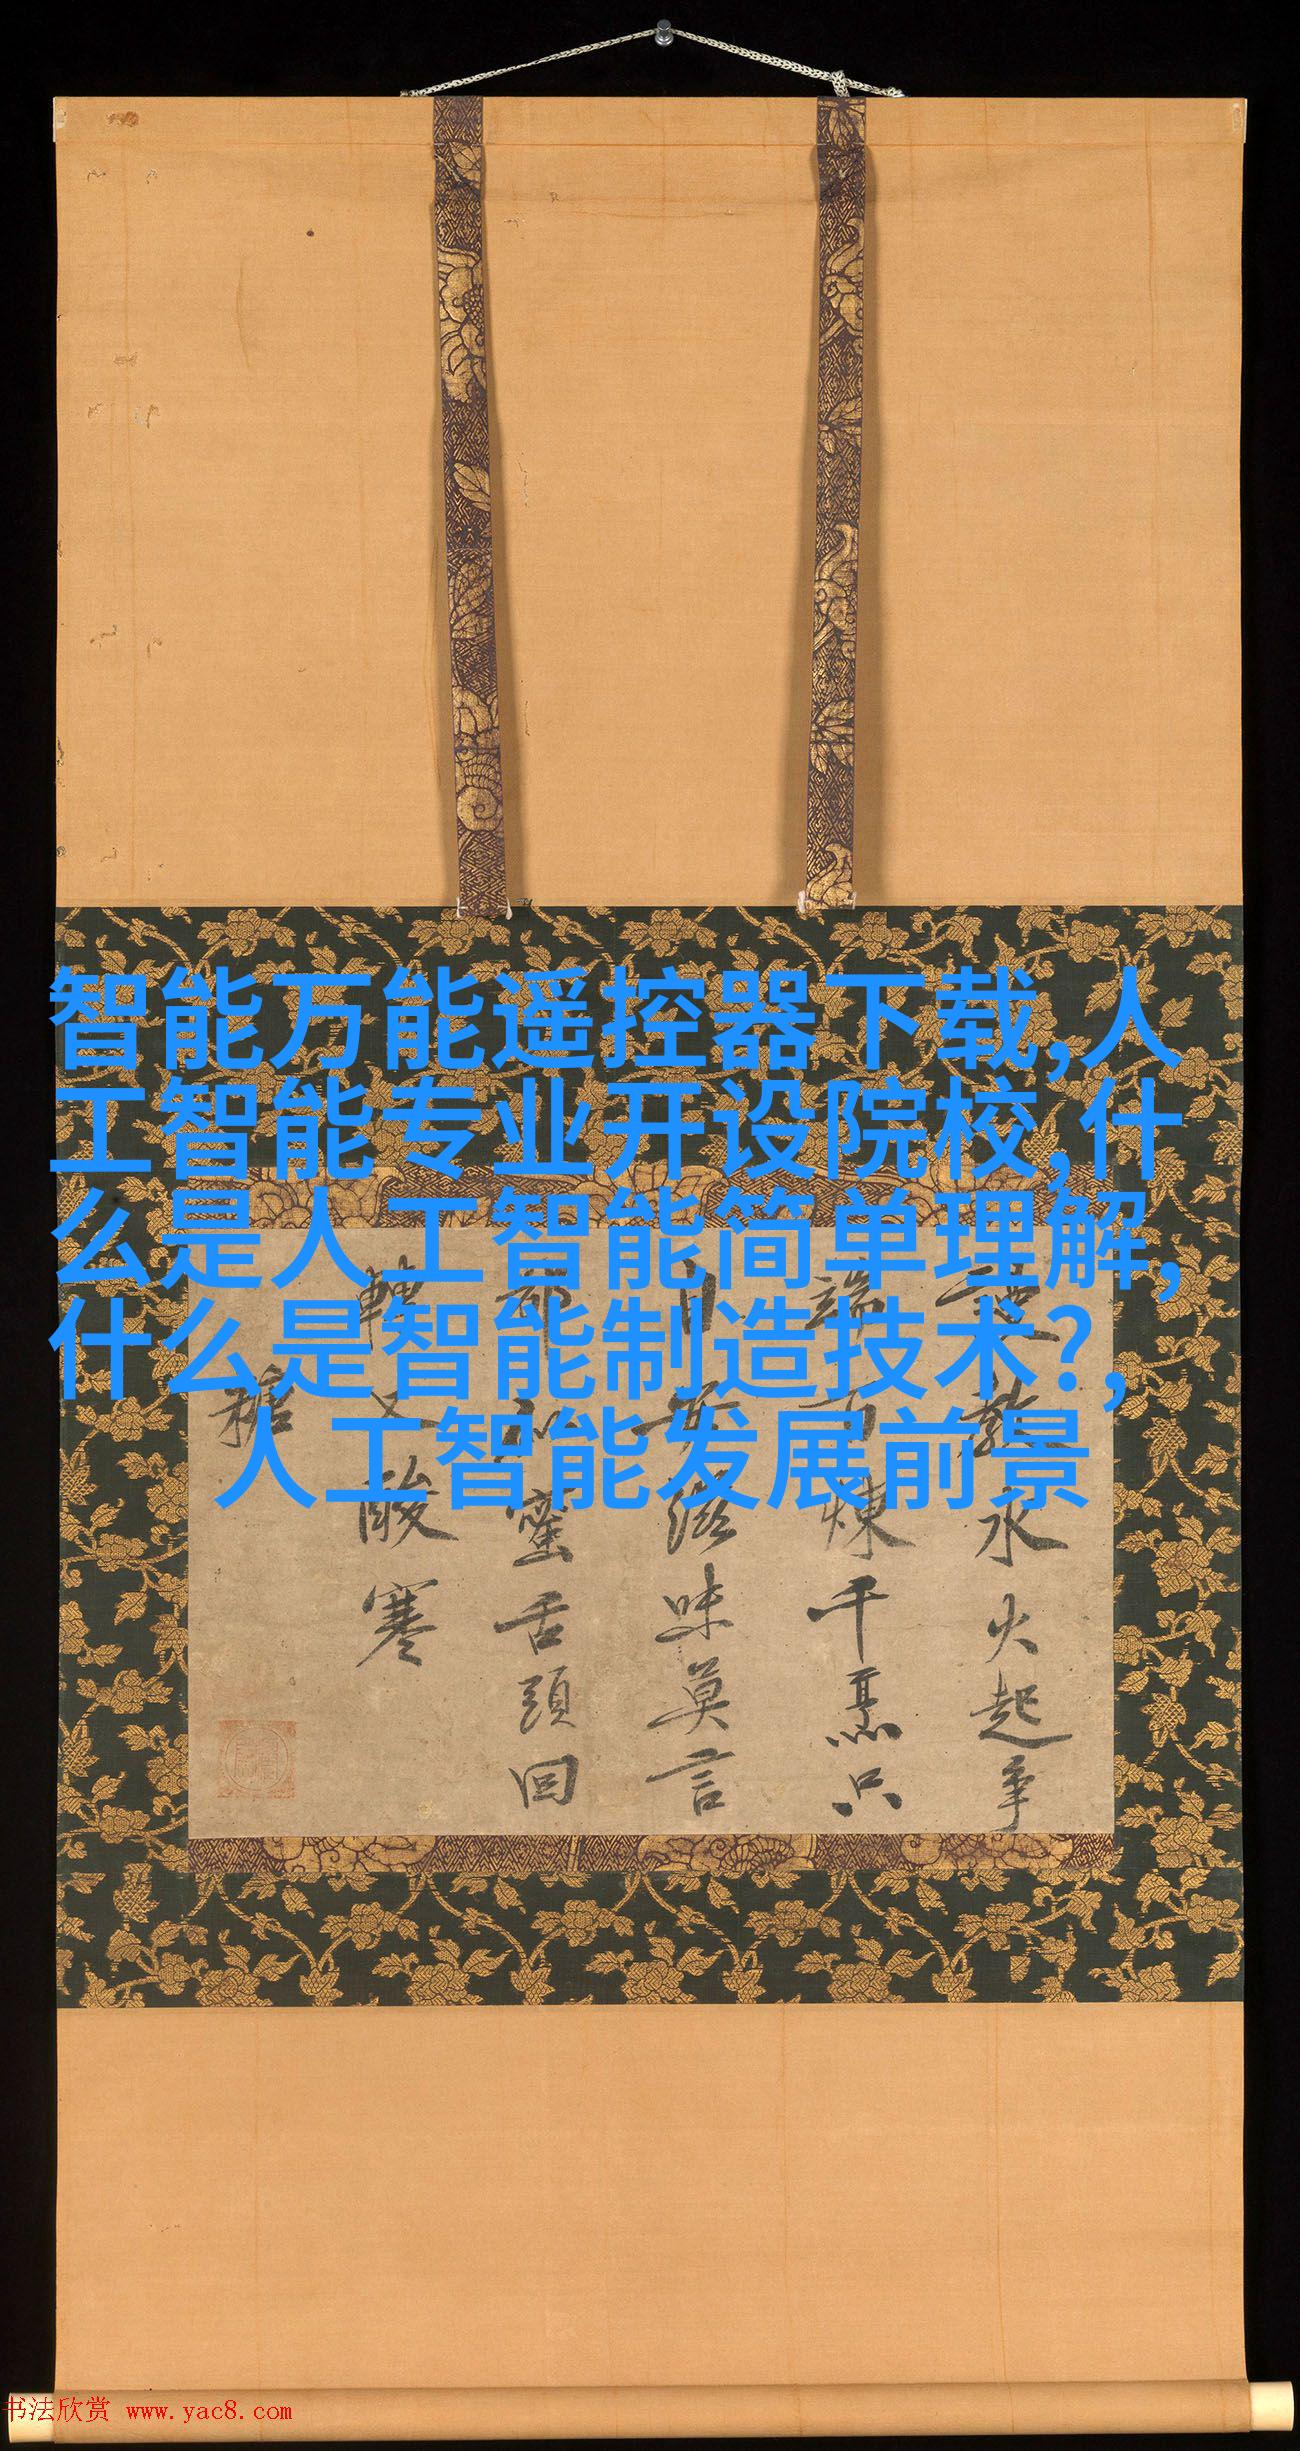 智能万能遥控器下载,人
工智能专业开设院校,什
么是人工智能简单理解,
什么是智能制造技术?,
人工智能发展前景
火起争
千烹只
味莫言
蠻舌頭回
轉又酸寒
書法欣赏 www.yac8.com